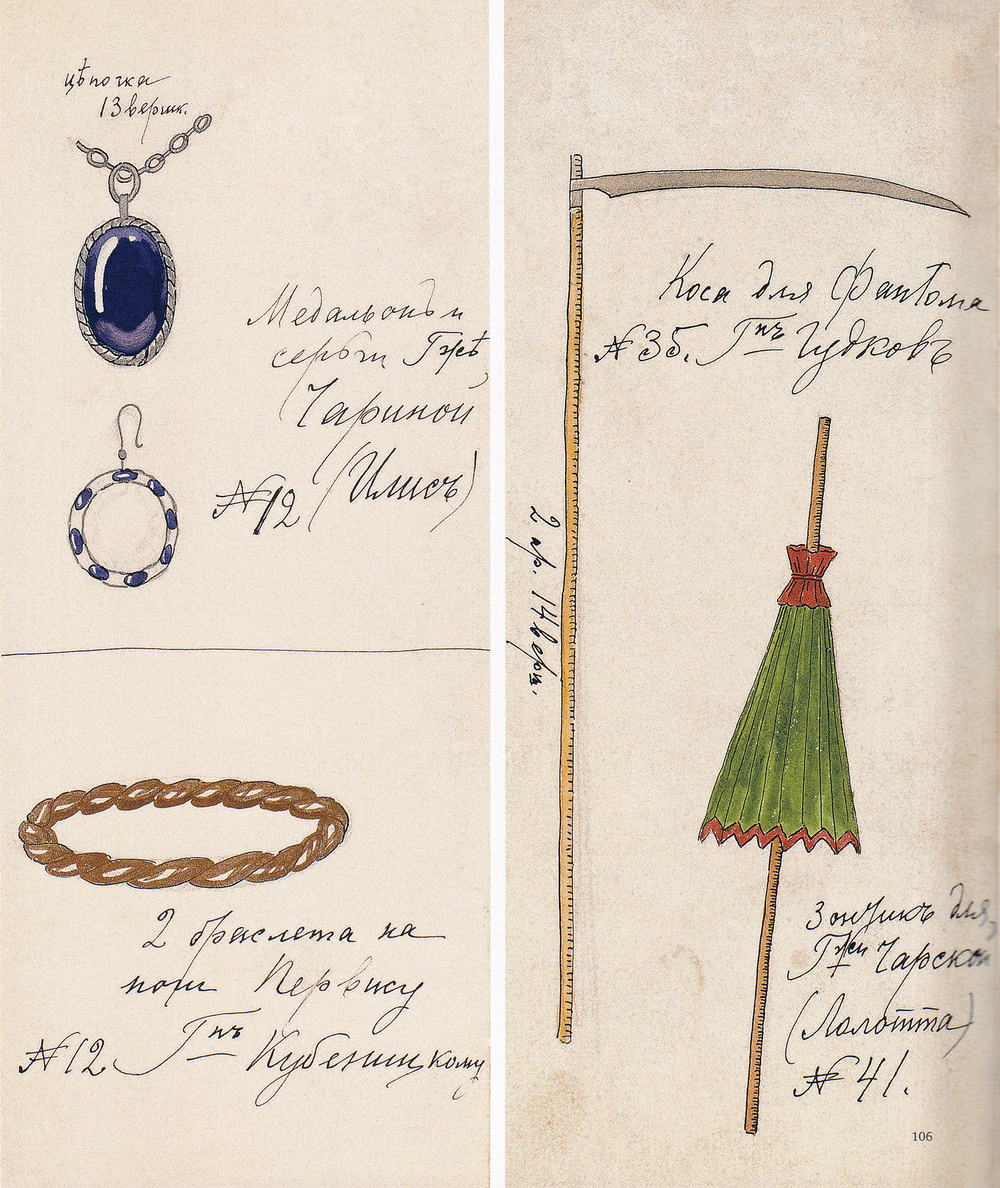 цѣпочка
13 вершк.
Медальонъ и
серьги Гжѣ
Чариной
№ 12 (Илисъ)
2 браслета на
ноги Первису
№ 12 Гнъ Кубеницкому
Коса для Фантома
№ 35. Гнъ Гудковъ
2 ар. 14 верш.
Зонтикъ для
Гжи Чарской
(Лолотта)
№ 41.
106